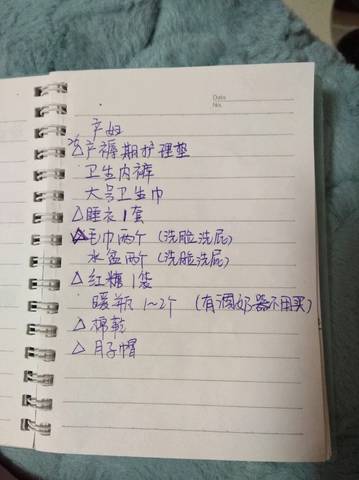 Date
No.
产妇
△产褥期护理垫
卫生内裤
大号卫生巾
△睡衣1套
毛巾两个(洗脸洗屁)
水盆两个(洗脸洗屁)
△红糖1袋
暖瓶1~2个 (有调奶器不用买)
△棉鞋
△月子帽